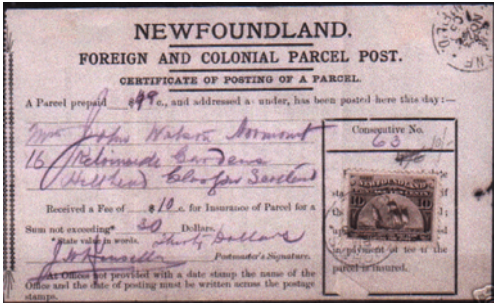 NEWFOUNDLAND.
FOREIGN AND COLONIAL PARCEL POST.
CERTIFICATE OF POSTING OF A PARCEL.
A Parcel prepaid $ 99 c., and addressed as under, has been posted here this day:—
Mrs John Watson
16 Gardens
Hillhead Glasgow Scotland
Consecutive No.
63
NEWFOUNDLAND
10 10
Received a Fee of $ 10 c. for Insurance of Parcel for a
Sum not exceeding* 30 Dollars.
*State value in words. Thirty Dollars
Postmaster's Signature.
in payment of fee if the
parcel is insured.
At Offices not provided with a date stamp the name of the
Office and the date of posting must be written across the postage
stamp.